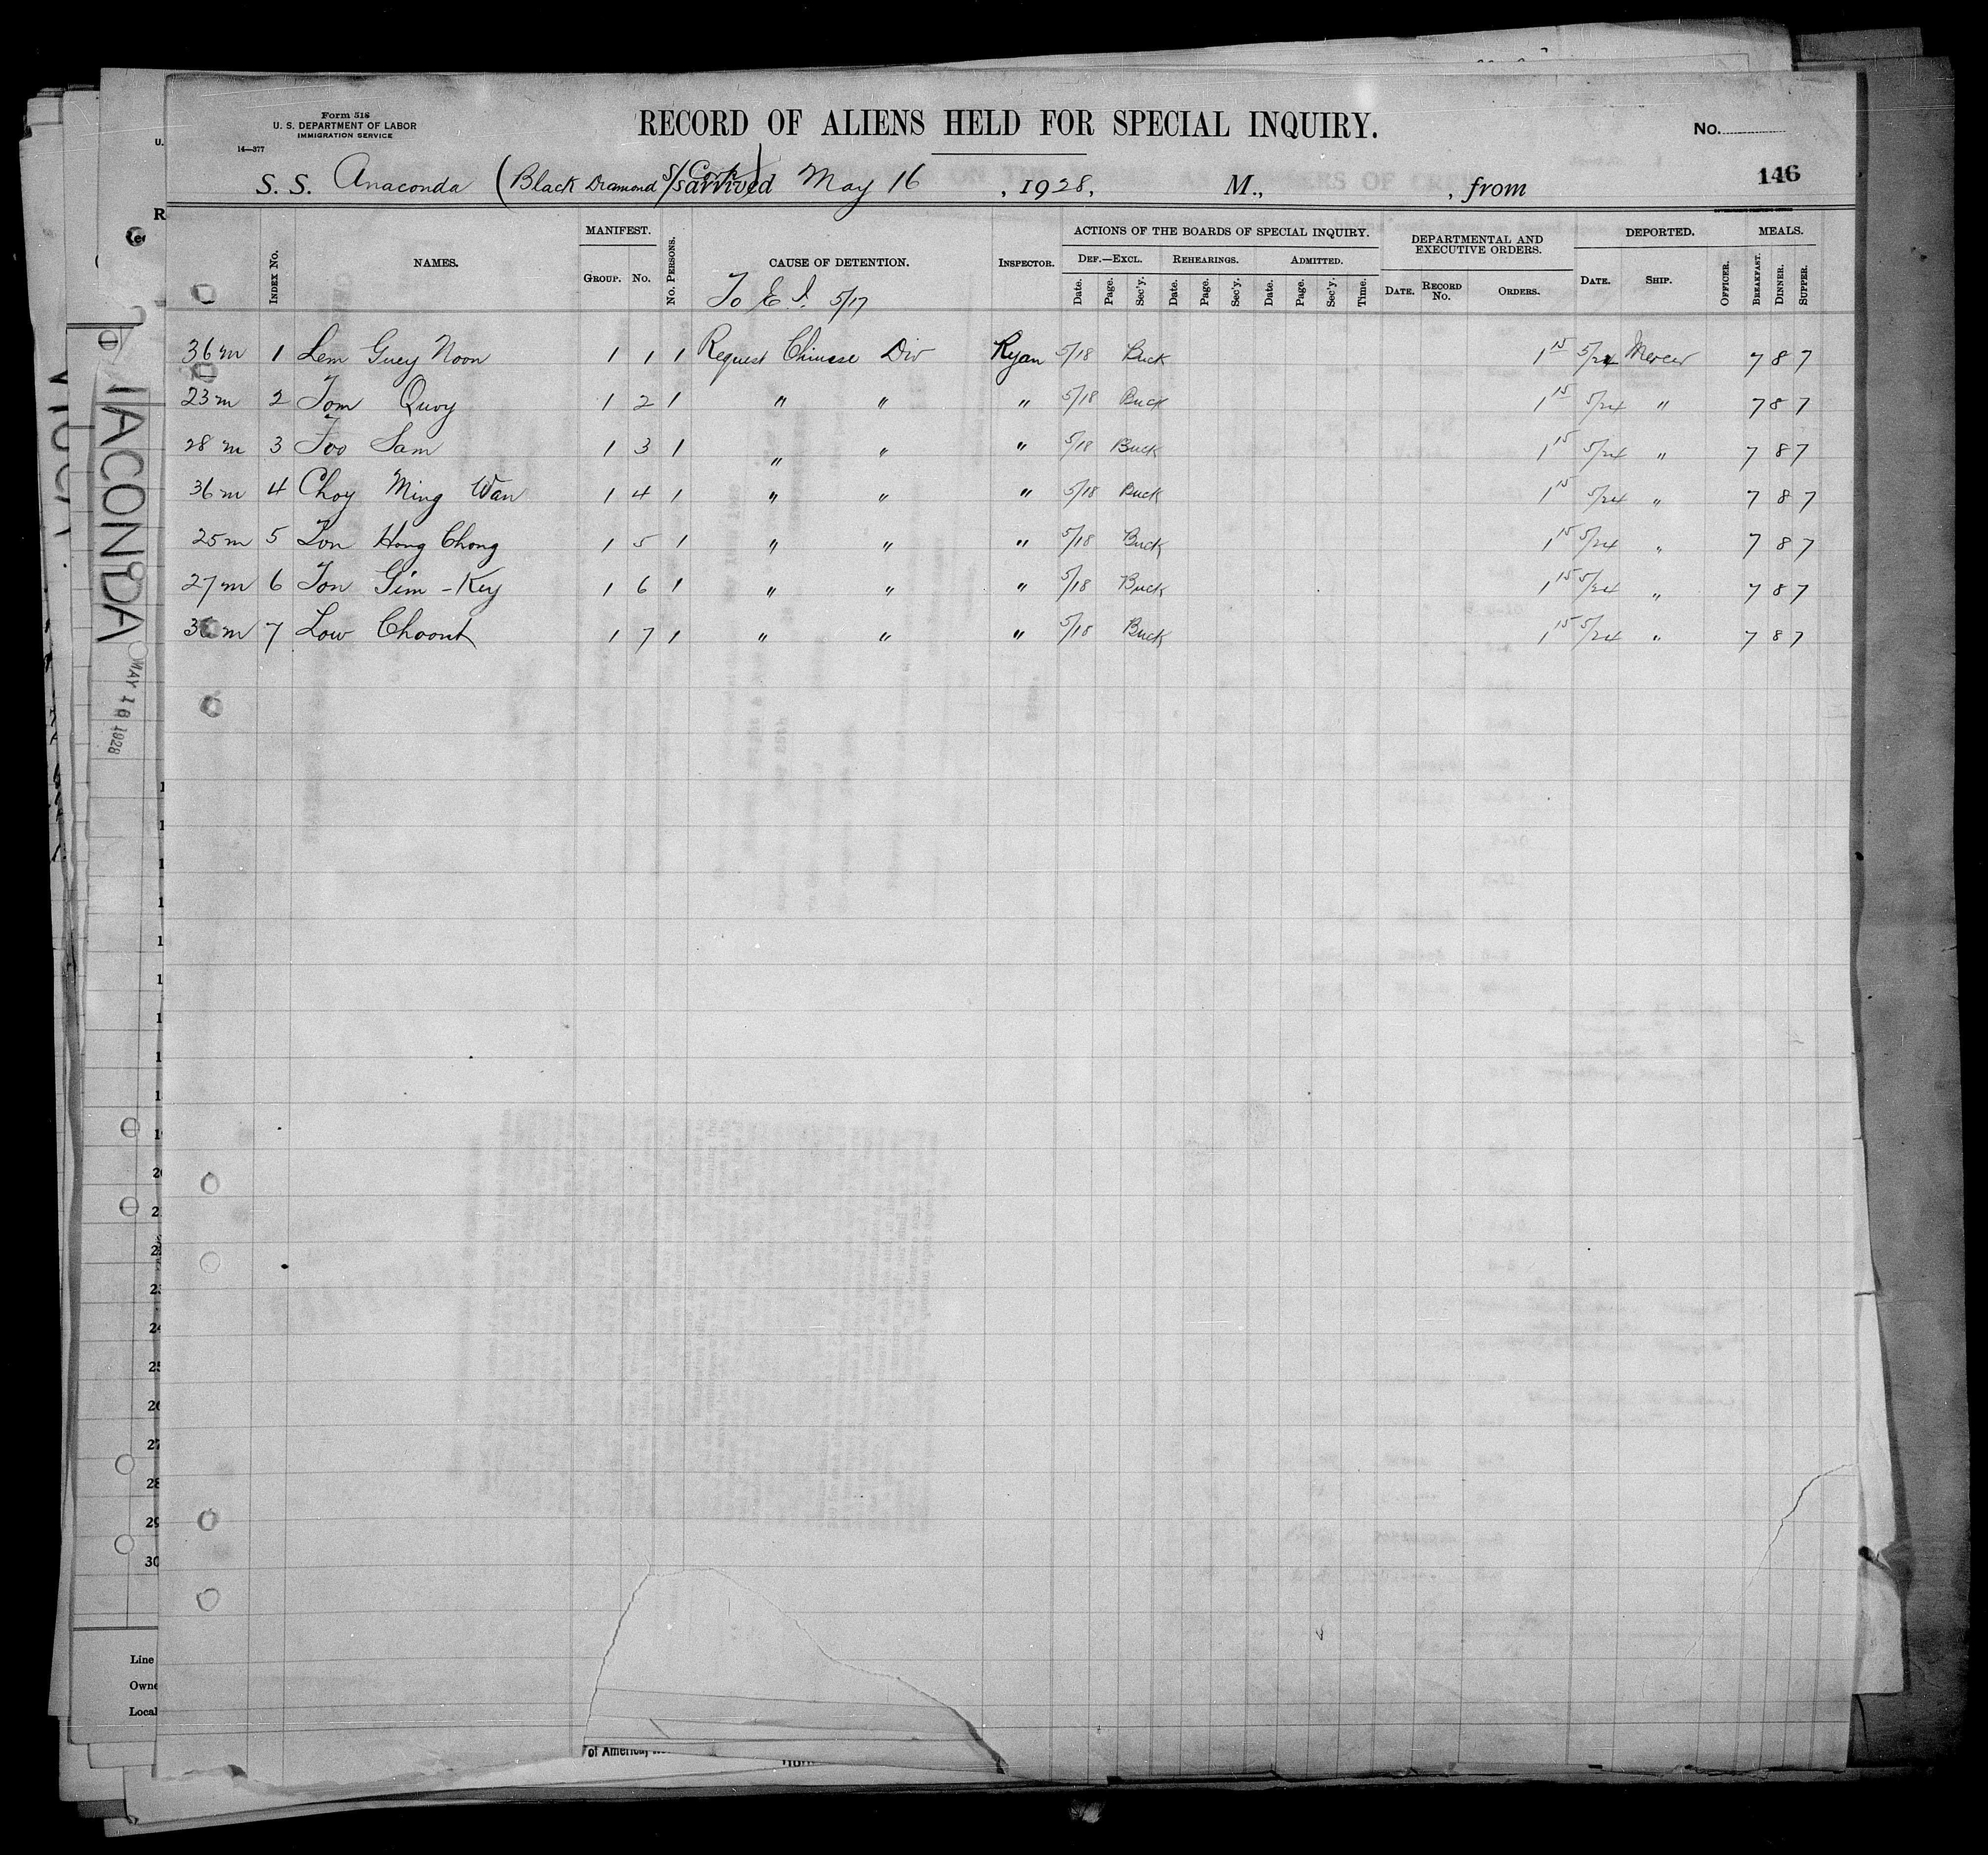 Form 518
U. S. DEPARTMENT OF LABOR
IMMIGRATION SERVICE
14—377
RECORD OF ALIENS HELD FOR SPECIAL INQUIRY.
No.
146
S. S. Anaconda (Black Diamond S/S Corp) arrived May 16, 1928, M., , from
INDEX No.
NAMES.
MANIFEST.
GROUP. No.
No. PERSONS.
CAUSE OF DETENTION.
INSPECTOR.
ACTIONS OF THE BOARDS OF SPECIAL INQUIRY.
DEF.—EXCL. REHEARINGS. ADMITTED.
Date. Page. Sec'y. Date. Page. Sec'y. Date. Page. Sec'y. Time.
DEPARTMENTAL AND EXECUTIVE ORDERS.
DATE. RECORD No. ORDERS.
DEPORTED.
DATE. SHIP. OFFICER.
MEALS.
BREAKFAST. DINNER. SUPPER.
To E. I. 5/17
36 m 1 Lem Guey Noon 1 1 1 Request Chinese Div Ryan 5/18 Buck 1 15 5/24 Mercer 7 8 7
23 m 2 Tom Quoy 1 2 1 " " " 5/18 Buck 1 15 5/24 " 7 8 7
28 m 3 Foo Sam 1 3 1 " " " 5/18 Buck 1 15 5/24 " 7 8 7
36 m 4 Choy Ming Wan 1 4 1 " " " 5/18 Buck 1 15 5/24 " 7 8 7
25 m 5 Hong Chong 1 5 1 " " " 5/18 Buck 1 15 5/24 " 7 8 7
27 m 6 Gim - Key 1 6 1 " " " 5/18 Buck 1 15 5/24 " 7 8 7
m 7 Low 1 7 1 " " " 5/18 Buck 1 15 5/24 " 7 8 7
ACONDA
MAY 16 1928
20
22
23
24
25
26
27
28
29
30
Line
Owne
Local
of America,